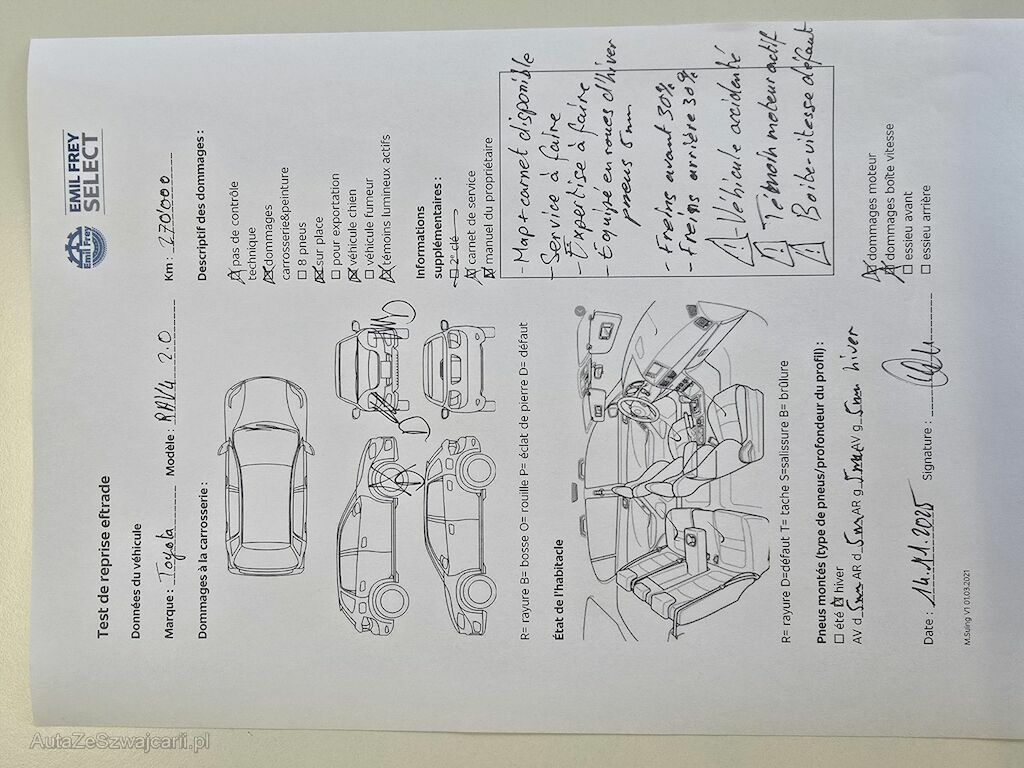 Emil Frey
EMIL FREY
SELECT
Test de reprise eftrade
Données du véhicule
Marque : Toyota Modèle : RAV4 2.0 Km : 270'000
Dommages à la carrosserie :
Descriptif des dommages :
pas de contrôle
technique
dommages
carrosserie&peinture
8 pneus
sur place
pour exportation
véhicule chien
véhicule fumeur
témoins lumineux actifs
Informations
supplémentaires :
2e clé
carnet de service
manuel du propriétaire
R= rayure B= bosse O= rouille P= éclat de pierre D= défaut
État de l'habitacle
- Map+carnet disponible
- Service à faire
- Expertise à faire
- Équipé en roues d'hiver
pneus 5mm
- Freins avant 30%
- Freins arrière 30%
! - Véhicule accidenté
! Témoin moteur actif
! Boite-vitesse défaut
R= rayure D=défaut T= tache S=salissure B= brûlure
Pneus montés (type de pneus/profondeur du profil) :
été hiver
AV d 5mm AR d 5mm AR g 5mm AV g 5mm hiver
dommages moteur
dommages boîte vitesse
essieu avant
essieu arrière
Date : 14.11.2025 Signature :
M.Suing V1 01.03.2021
AutaZeSzwajcarii.pl